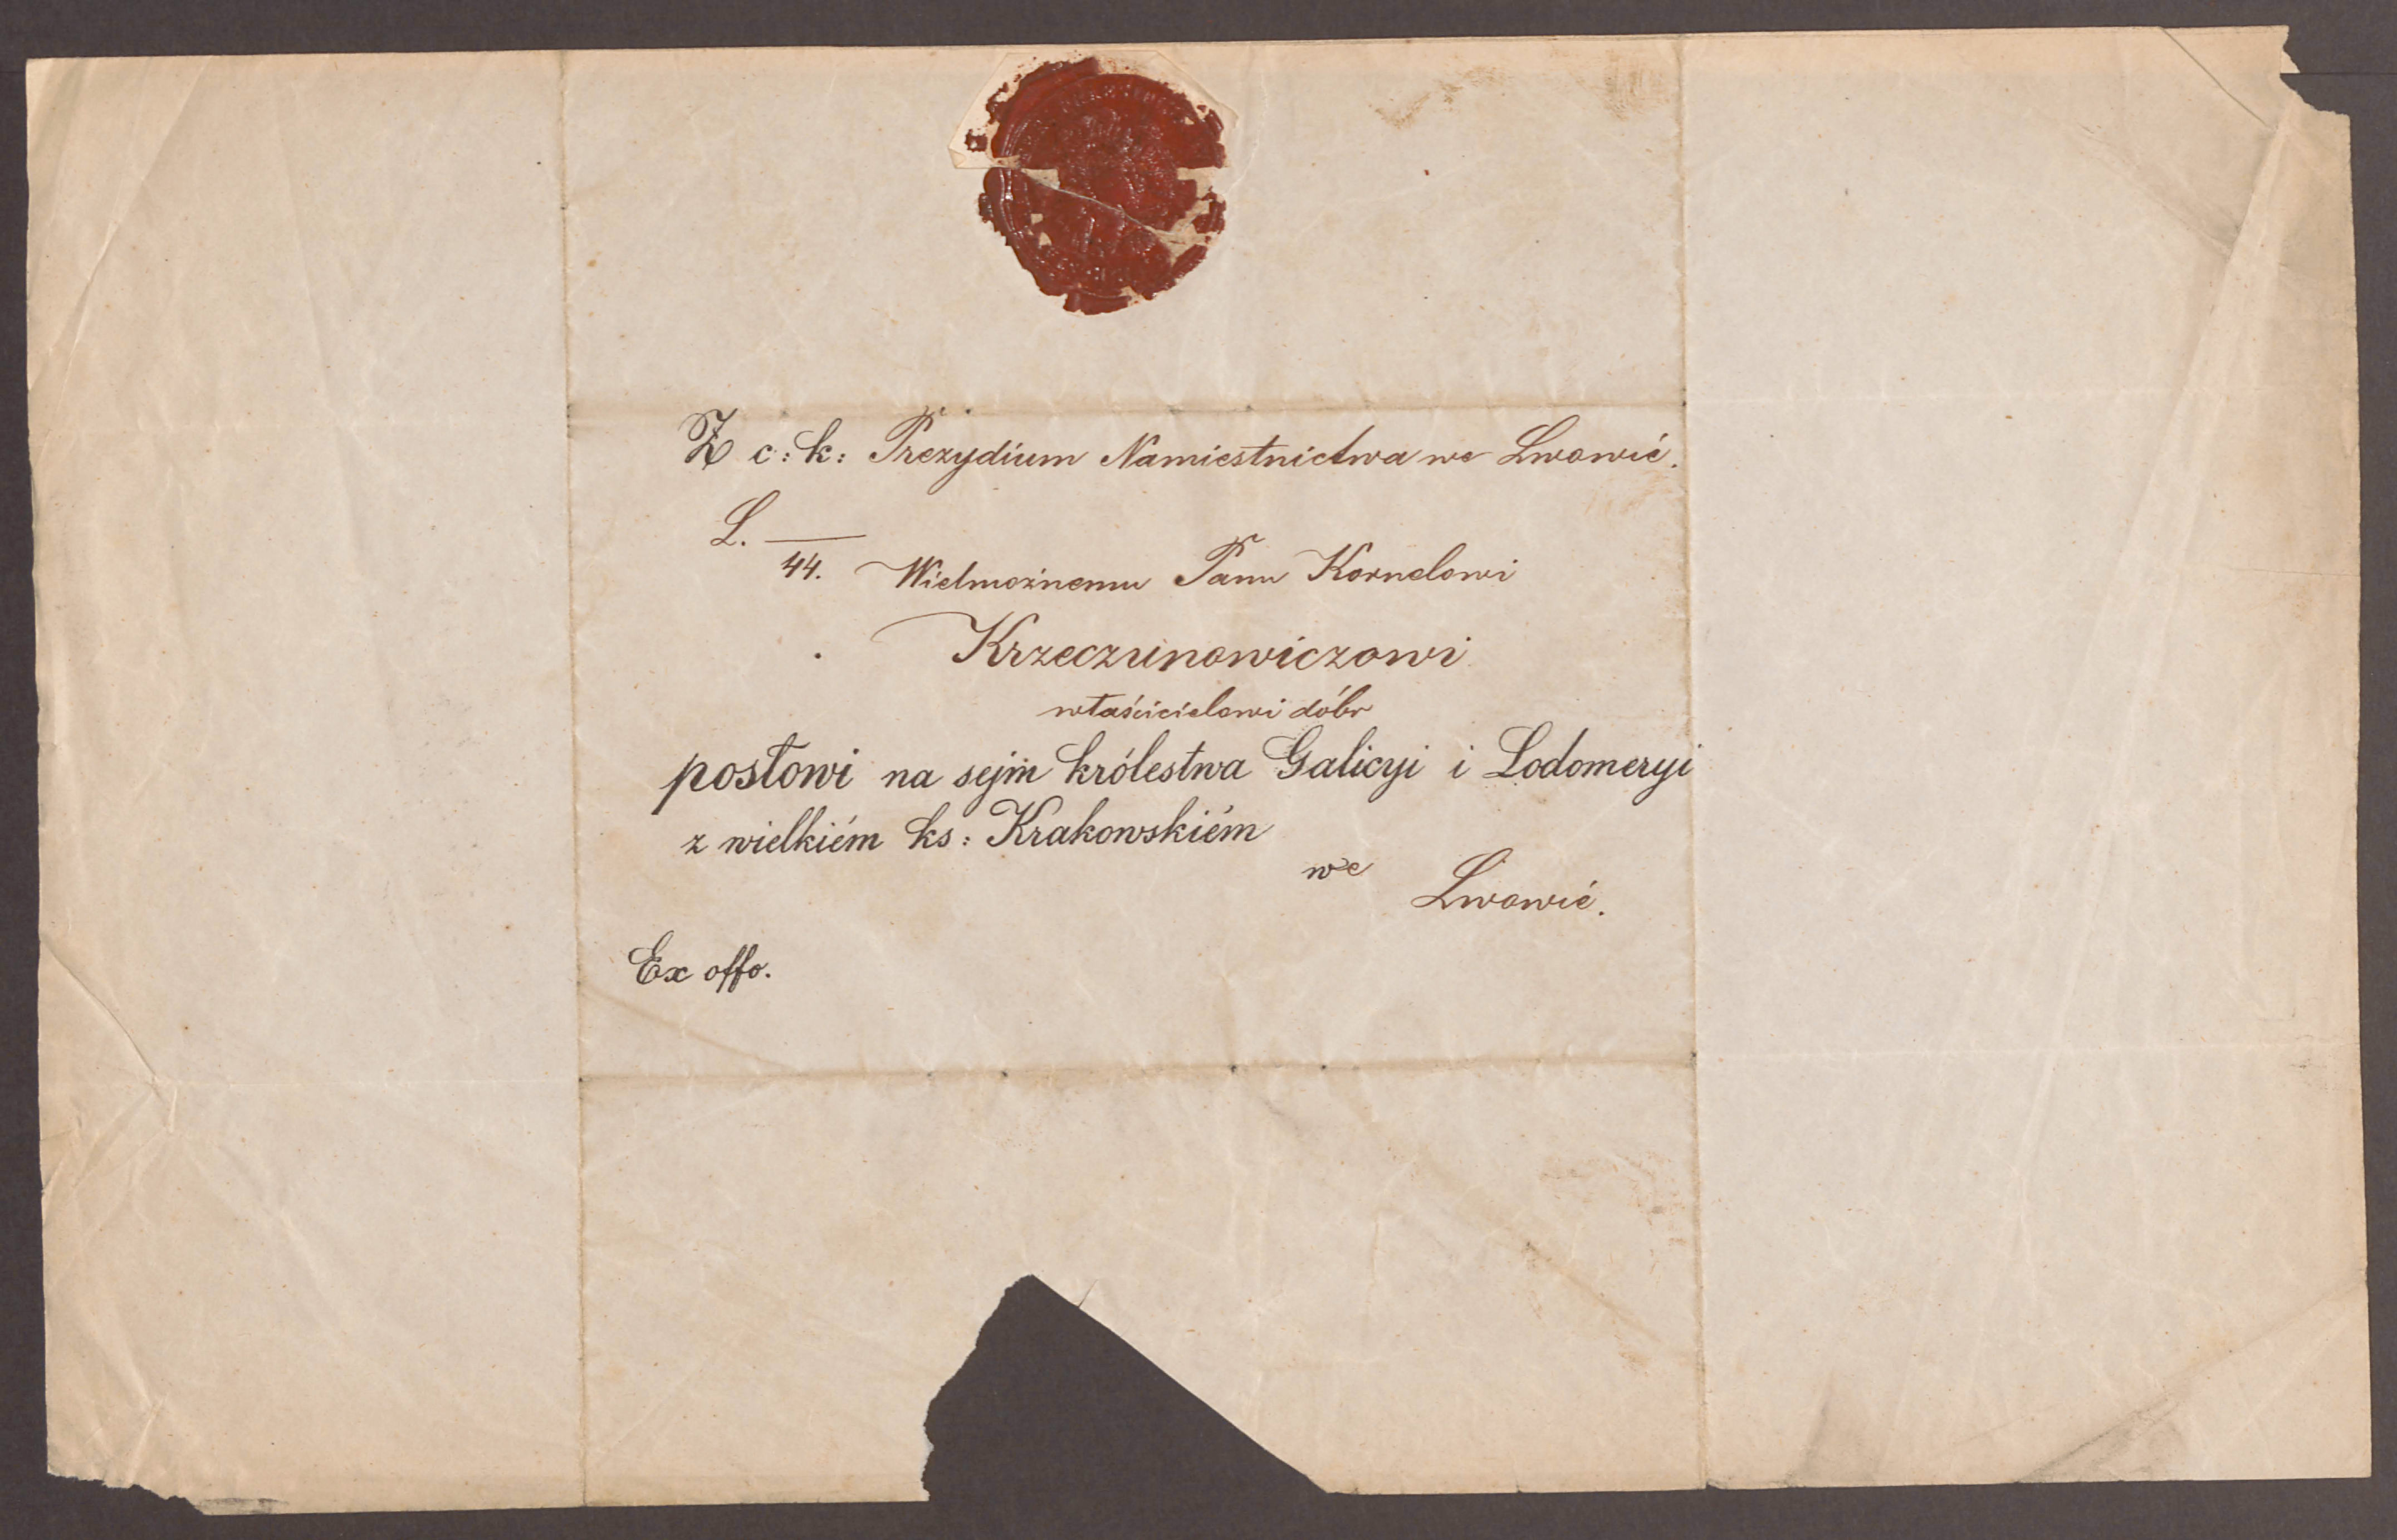 Z c: k: Prezydium Namiestnictwa we Lwowié.
L. —
44. Wielmożnemu Panu Kornelowi
Krzeczunowiczowi
właścicielowi dóbr
posłowi na sejm królestwa Galicyi i Lodomeryi
z wielkiém ks: Krakowskiém
we Lwowié.
Ex offo.